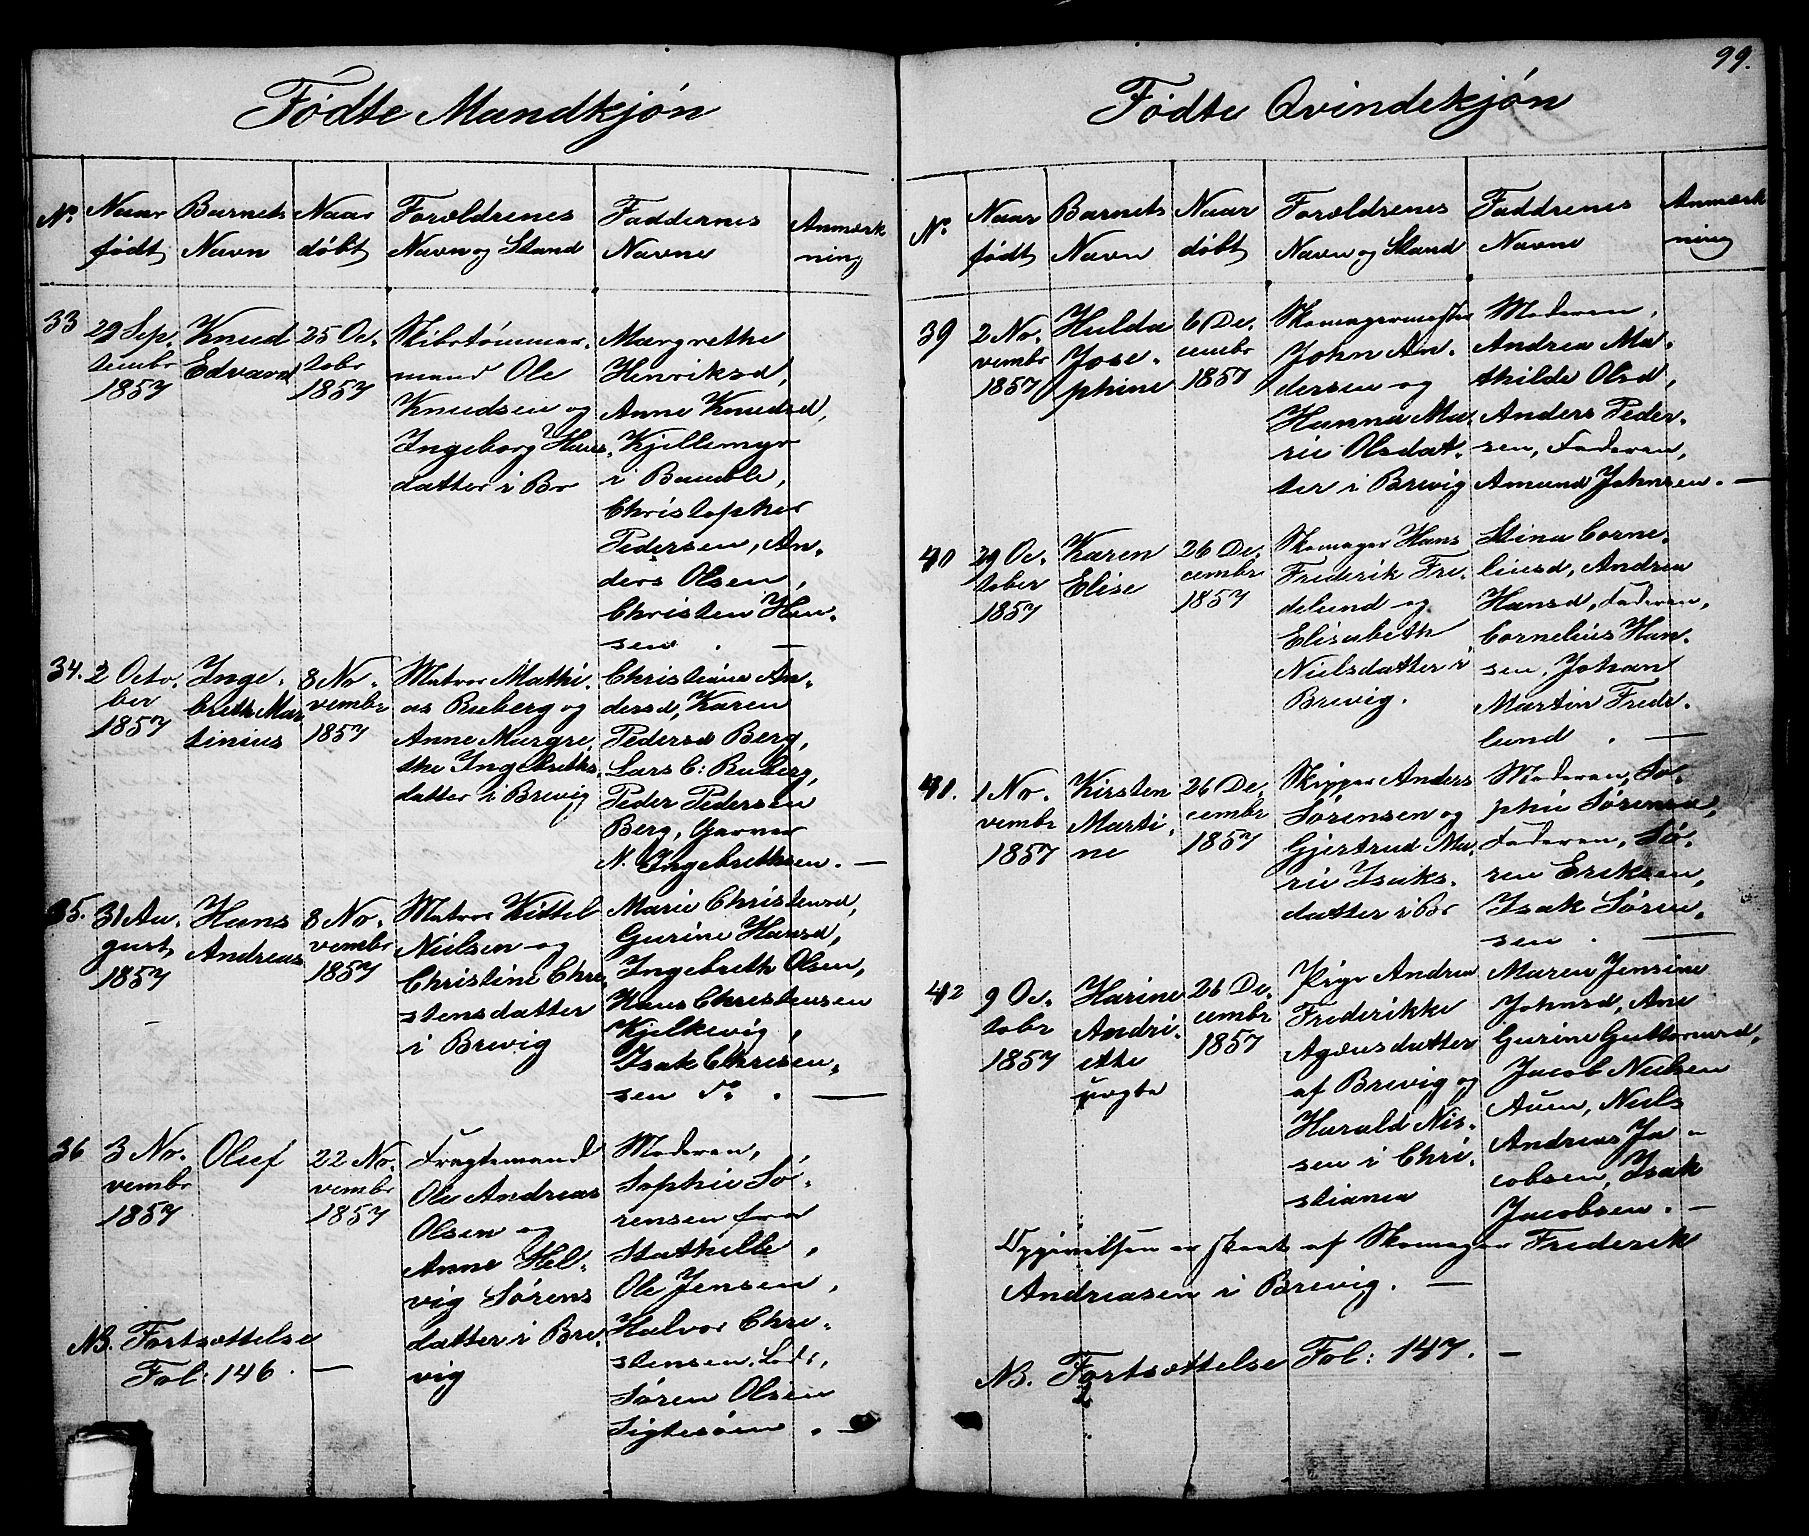 99.
Fødte Mandkjøn
No Naar født Barnets Navn Naar døbt Forældrenes Navn og Stand Faddernes Navne Anmærkning
33
29 Sep-
tembr
1857
Knud
Edvard
25 Oc-
tobr
1857
Skibstømmer-
mand Ole
Knudsen og
Ingeborg Hans-
datter i Br
Margrethe
Henriksd,
Anne Knudsd,
Kjellsmyr
i Bamble,
Christopher
Pedersen, An-
ders Olsen,
Christen Han-
sen . —
34.
2 Octo-
ber
1857
Inge-
breth Mar
tinius
8 No-
vembr
1857
Matros Mathi-
as Ruberg og
Anne Margre-
the Ingebreths-
datter i Brevig
Christiane An-
dersd, Karen
Pedersd Berg,
Lars C: Ruberg,
Peder Pedersen
Berg, Garver
N. Ingebrethsen. —
35.
31 Au-
gust
1857
Hans
Andreas
8 No-
vembr
1857
Matros Kittel
Nielsen og
Christine Chri-
stensdatter
i Brevig
Marie Christensd,
Gurine Hansd,
Ingebreth Olsen,
Hans Christensen
Kjelkevig,
Isak Christen-
sen do . —
36
3 No-
vembr
1857
Oluf
22 No-
vembr
1857
Fragtemand
Ole Andreas
Olsen og
Anne Hel-
vig Sørens
datter i Bre-
vig
Moderen,
Sophie Sø-
rensen fra
Stathelle,
Ole Jensen,
Halvor Chri-
stensen, Lods,
Søren Olsen
Sigtesøen . —
NB. Fortsættelse
Fol: 146. —
Fødte Qvindekjøn
No Naar født Barnets Navn Naar døbt Forældrenes Navn og Stand Faddrenes Navne Anmærkning
39
2 No-
vembr
1857
Hulda
Jose-
phine
6 De-
cembr
1857
Skomagermester
John An-
dersen og
Hanna Ma-
rie Olsdat-
ter i Brevig
Moderen,
Andrea Ma-
thilde Olsd,
Anders Peder-
sen, Faderen,
Amund Johnsen. —
40
29 Oc-
tober
1857
Karen
Elise
26 De-
cembr
1857
Skomager Hans
Frederik Fre-
delund og
Elisabeth
Nielsdatter i
Brevig.
Stina Corne-
liusd, Andrea
Hansd, Faderen,
Cornelius Han-
sen, Johan
Martin Frede-
lund . —
41.
1 No-
vembr
1857
Kirsten
Marti-
ne
26 De-
cembr
1857
Skipper Anders
Sørensen og
Gjertrud Ma-
rie Isaks-
datter i Br
Moderen, So-
phie Sørensd,
Faderen, Sø-
ren Eriksen,
Isak Søren-
sen . —
42
9 Oc-
tobr
1857
Harine
Andri-
ette
uægte
26 De-
cembr
1857
Pige Andrea
Frederikke
Agæusdatter
af Brevig og
Harald Nis-
sen i Chri-
stiania
Maren Jensine
Johnsd, Ane
Gurine Guttormsd,
Jacob Nielsen
Auen, Niels
Andreas Ja-
cobsen, Isak
Jacobsen. —
Opgivelsen er skeet af Skomager Frederik
Andreasen i Brevig. —
NB. Fortsættelse Fol: 147. —